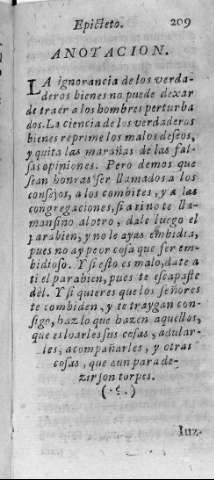 Epicteto. 209
ANOTACION.
LA ignorancia de los verda-
deros bienes no puede dexar
de traèr a los hombres perturba
dos. La ciencia de los verdaderos
bienes reprime los malos deseos,
y quita las marañas de las fal-
sas opiniones. Pero demos que
sean honras ser llamados a los
consejos, a los combites, y a las
congregaciones, si a ti no te lla-
man sino al otro, dale luego el
parabien, y no le ayas embidia,
pues no ay peor cosa que ser em-
bidioso. Y si esto es malo, date a
ti el parabien, pues te escapaste
dèl. Y si quieres que los señores
te combiden, y te traygan con-
sigo, haz lo que hazen aquellos,
que es loarles sus cosas, adular-
les, acompañarles, y otras
cosas, que aun para de-
zir son torpes.
Iuz.